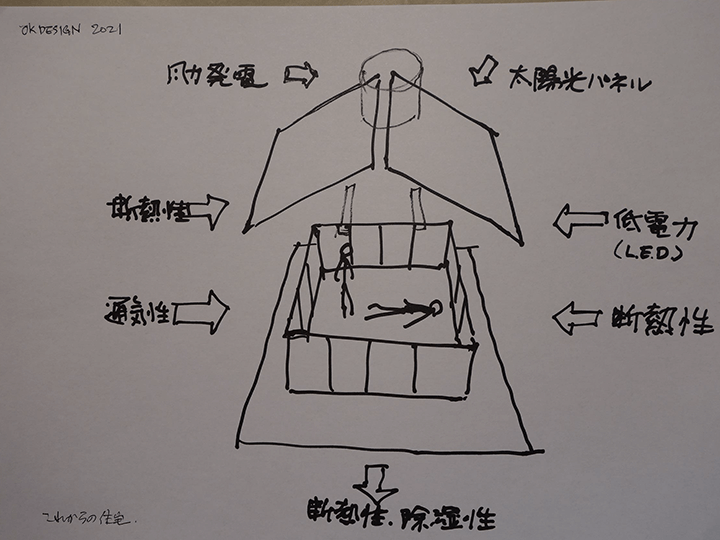 OKDESIGN 2021
風力発電
太陽光パネル
断熱性
低電力
(L.E.D.)
通気性
断熱性
断熱性、除湿性
これからの住宅.